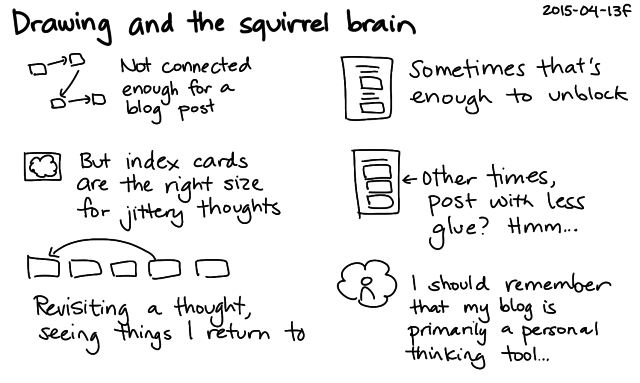 Drawing and the squirrel brain
2015-04-13f
Not connected
enough for a
blog post
But index cards
are the right size
for jittery thoughts
Revisiting a thought,
seeing things I return to
Sometimes that's
enough to unblock
Other times,
post with less
glue? Hmm...
I should remember
that my blog is
primarily a personal
thinking tool...